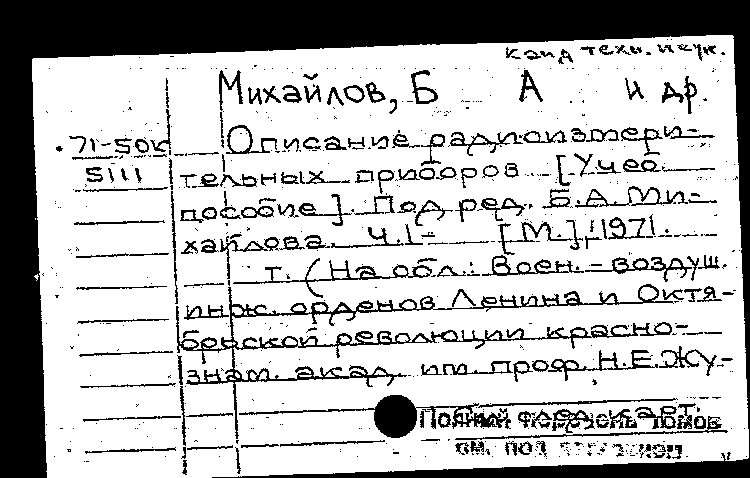 канд техн. наук.
Михайлов, Б А и др.
71-50к Описание радиоизмери-
5111 тельных приборов [Учеб.
пособие]. Под ред. Б.А. Ми-
хайлова. Ч.1- [М.], 1971.
т. (На обл.: Воен.-воздуш.
инж. орденов Ленина и Октя-
брьской революции красно-
знам. акад. им. проф. Н.Е.Жу-
Полный перечень томов
см. под